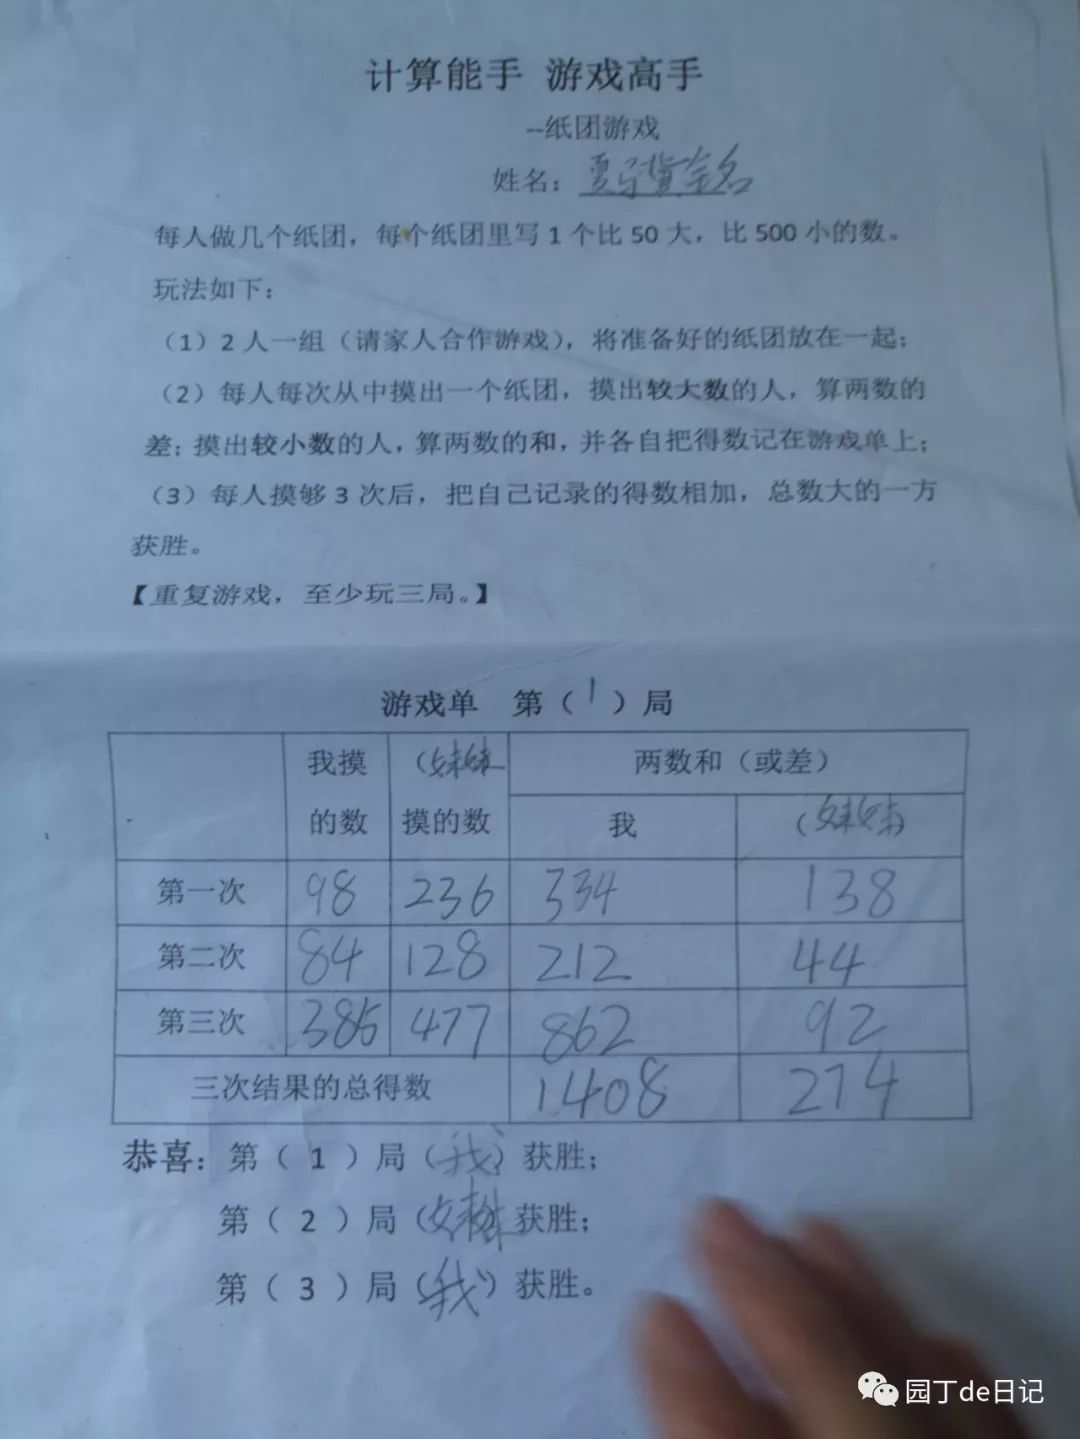 计算能手 游戏高手
--纸团游戏
姓名：
每人做几个纸团，每个纸团里写1个比50大，比500小的数。
玩法如下：
（1）2人一组（请家人合作游戏），将准备好的纸团放在一起；
（2）每人每次从中摸出一个纸团，摸出较大数的人，算两数的
差；摸出较小数的人，算两数的和，并各自把得数记在游戏单上；
（3）每人摸够3次后，把自己记录的得数相加，总数大的一方
获胜。
【重复游戏，至少玩三局。】
游戏单 第（1）局
我摸的数 （妹妹 摸的数 两数和（或差）
我 （妹妹）
第一次 98 236 334 138
第二次 84 128 212 44
第三次 385 477 862 92
三次结果的总得数 1408 274
恭喜：第（1）局（我）获胜；
第（2）局（妹妹 获胜；
第（3）局（我）获胜。
园丁de日记